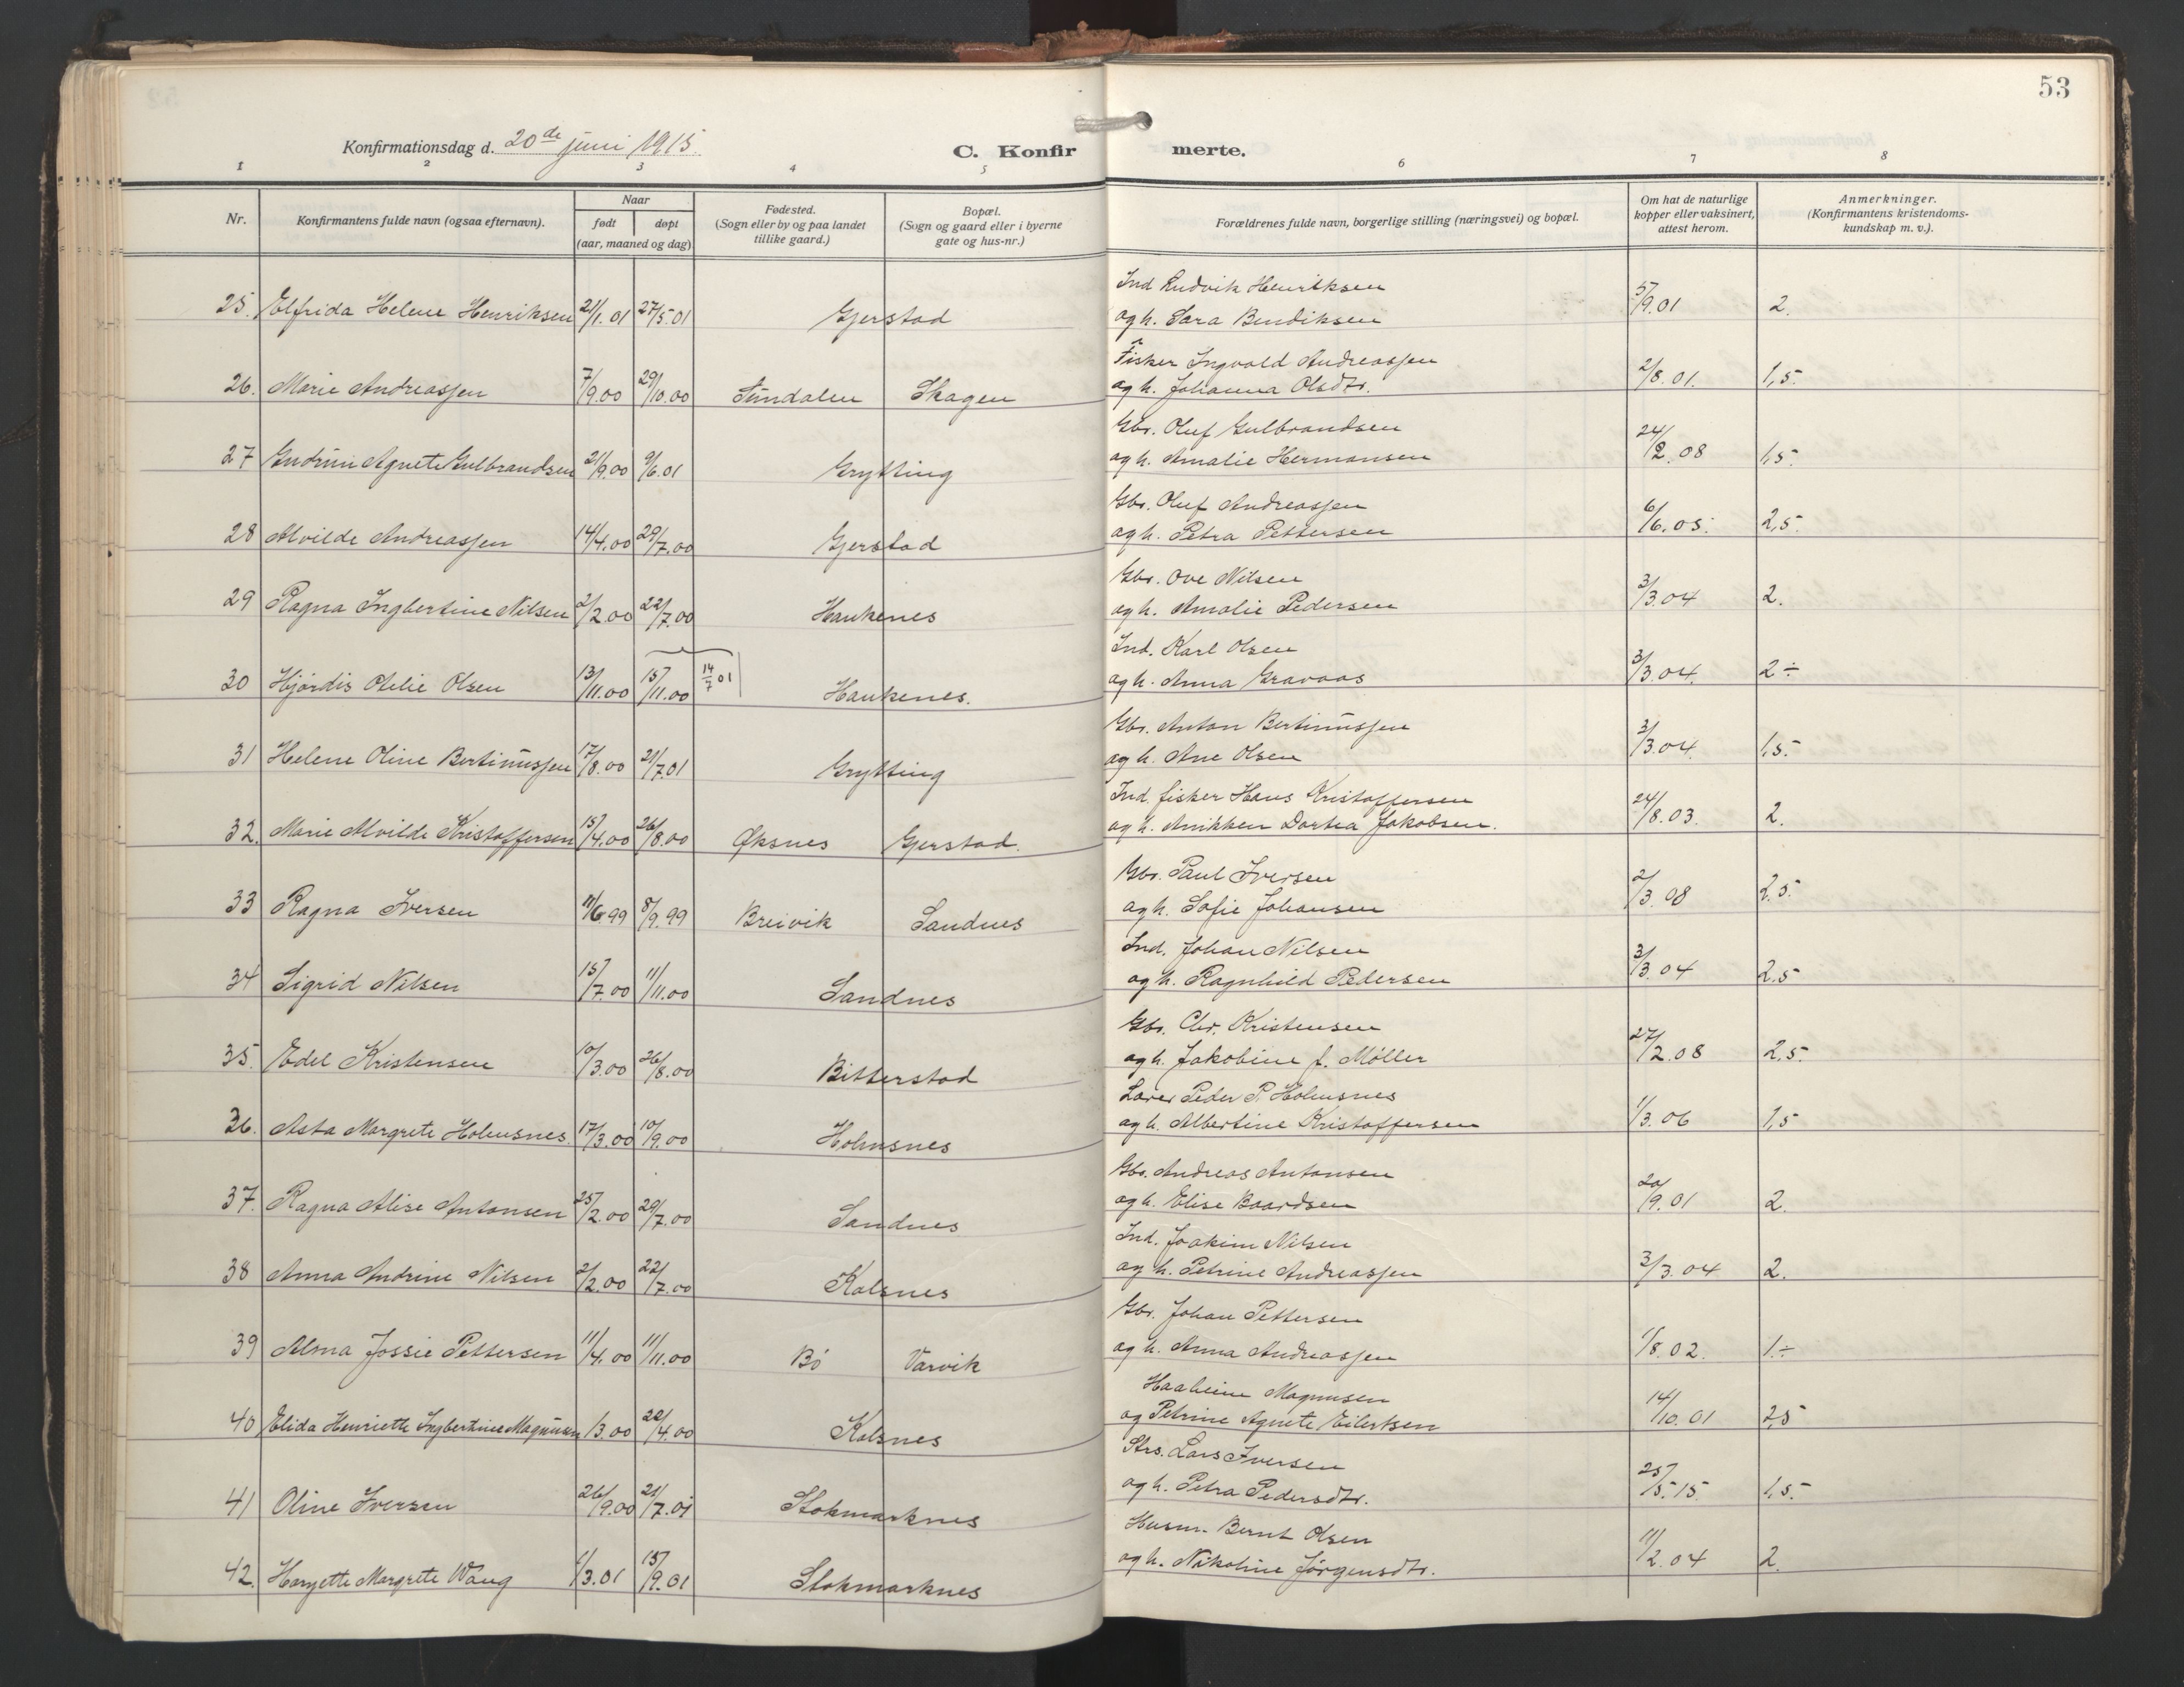 53
Konfirmationsdag d. 20de juni 1915.
C. Konfirmerte.
1 2 3 4 5 6 7 8
Nr. Konfirmantens fulde navn (ogsaa efternavn). Naar født døpt (aar, maaned og dag) Fødested. (Sogn eller by og paa landet tillike gaard.) Bopæl. (Sogn og gaard eller i byerne gate og hus-nr.) Forældrenes fulde navn, borgerlige stilling (næringsvei) og bopæl. Om hat de naturlige kopper eller vaksinert, attest herom. Anmerkninger. (Konfirmantens kristendoms-kundskap m. v.).
Ind Ludvik Henriksen
25. Elfrida Helene Henriksen 21/1.01 27/5.01 Gjerstad og h. Sara Bendiksen 5/9.01 2.
Fisker Ingvald Andreassen
26. Marie Andreassen 7/9.00 29/10.00 Sundalen Skagen og h. Johanna Olsdtr. 2/8.01. 1,5.
Gbr. Oluf Gulbrandsen
27 Gudrun Agnete Gulbrandsen 21/9.00 9/6.01 Grytting og h. Amalie Hermansen 24/2.08 1,5.
Gbr. Oluf Andreassen
28 Alvilde Andreassen 14/4.00 29/7.00 Gjerstad og h. Petra Pettersen 6/6.05. 2,5.
Gbr. Ove Nilsen
29 Ragna Ingbertine Nilsen 2/2.00 22/7.00 Haukenes og h. Amalie Pedersen 3/3.04 2.
Ind. Karl Olsen
30 Hjørdis Otelie Olsen 13/11.00 15/11.00 14/7 01 Haukenes. og h. Anna Gravaas 3/3.04. 2÷
Gbr. Anton Bertinussen
31 Helene Oline Bertinussen 17/8.00 21/7.01 Grytting og h. Ane Olsen 3/3.04. 1,5.-
Ind. fisker Hans Kristoffersen
32. Marie Alvilde Kristoffersen 15/4.00 26/8.00 Øksnes Gjerstad. og h. Anikken Dortea Jakobsen. 24/8.03. 2.
Gbr. Paul Iversen
33 Ragna Iversen 11/6 99 8/9.99 Breivik Sandnes og h. Sofie Johansen 2/3.08 2,5.
Ind. Johan Nilsen
34 Sigrid Nilsen 15/7.00 11/11.00 Sandnes og h. Ragnhild Pedersen 3/3.04 2,5
Gbr. Chr. Kristensen
35. Edel Kristensen 10/3.00 26/8.00 Bitterstad og h. Jakobine f. Møller 27/2.08 2,5.
Lærer Peder P. Holmsnes
36. Asta Margrete Holmsnes. 17/3.00 10/9.00 Holmsnes og h. Albertine Kristoffersen 1/3.06 1,5
Gbr. Andreas Antonsen
37. Ragna Alise Antonsen 25/2.00 29/7.00 Sandnes og h. Elise Baardsen 20/9.01 2.
Ind. Joakim Nilsen
38 Anna Andrine Nilsen 2/2.00 22/7.00 Kalsnes og h. Petrine Andreassen 3/3.04 2.
Gbr. Johan Pettersen
39 Alma Jossie Pettersen 11/4.00 11/11.00 Bø Varvik og h. Anna Andreassen 1/8.02. 1.÷
Magnusen
40 Elida Henriette Ingbertine Magnusen 1/3.00 22/4.00 Kalsnes og Petrine Agnete Eilertsen 14/10.01 2,5
Strs. Lars Iversen
41 Oline Iversen 26/9.00 21/7.01 Stokmarknes og h. Petra Pedersdtr. 25/5.15. 1,5.-
Husm. Bernt Olsen
42. Haryette Margrete Waug 1/3.01 15/9.01 Stokmarknes og h. Nikoline Jørgensdtr. 11/2.04 2.